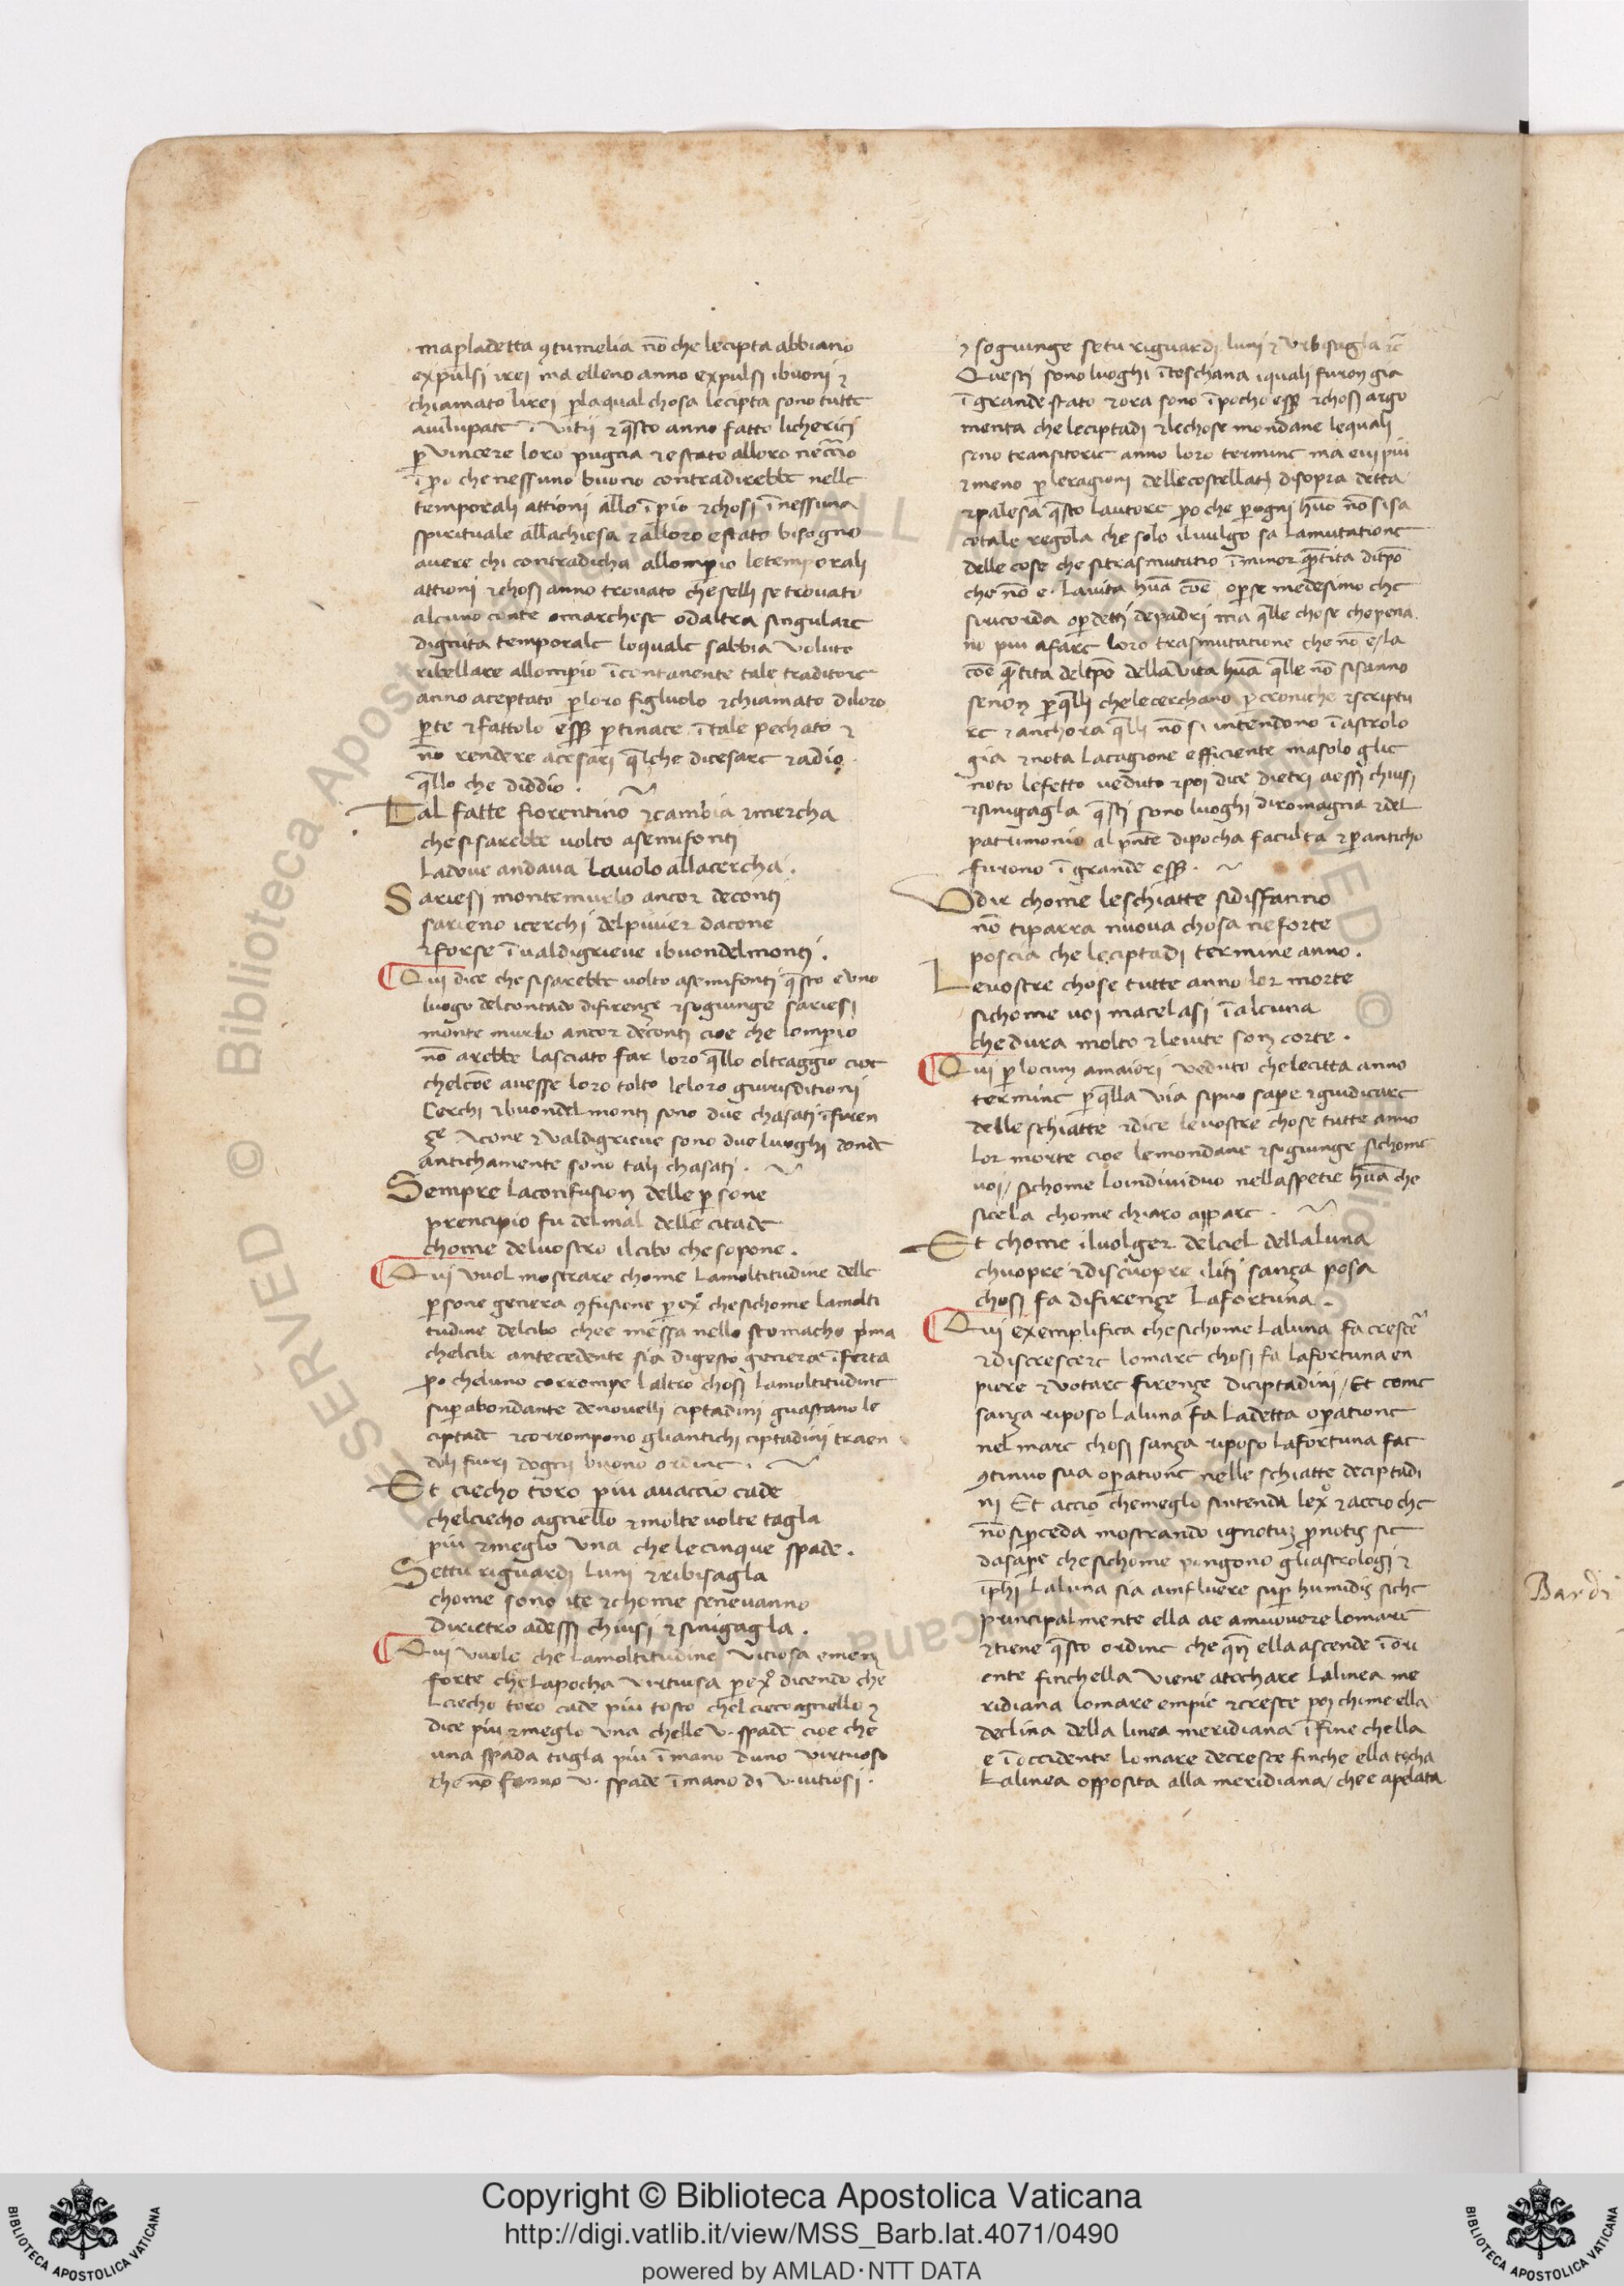 ma p̱ ladetta ꝯtumelia nō che lecipta abbiano
expulsi irei ma elleno anno expulsi ibuoni ⁊
chiamato lirei p̱ laqual chosa lecipta sono tutte
auilupate ī uitii ⁊ q̄sto anno fatto licherici
p̱ uincere loro pugna ⁊ estato alloro neccio
ī p̱o che nessuno buono contradirebbe nelle
temporali attioni allo īpio ⁊ chosi ī nessuna
spirituale allachiesa ⁊ alloro estato bisogno
auere chi contradicha allomp̱io letemporali
attioni ⁊ chosi anno trouato che selli se trouato
alcuno conte omarchese odaltra singulare
dignita temporale loquale sabbia uoluto
ribellare allomp̱io ī contanente tale traditore
anno aceptato p̱ loro figluolo ⁊ chiamato diloro
p̱te ⁊ fattolo ess̄ p̱tinace ī tale pechato ⁊
nō rendere acesari q̄l che dicesare ⁊ adio
q̄llo che diddio .
Tal fatte fiorentino ⁊ cambia ⁊ mercha
che sisarebbe uolto asemifonti
Ladoue andaua lauolo allacercha .
Sariesi montemurlo ancor deconti
sarieno icerchi delpiuier dacone
⁊ forse ī ualdigrieue ibuondelmonti .
Qui dice che sisarebbe uolto asemifonti q̄sto e uno
luogo delcontado difirenze ⁊ sogiunge sariesi
monte murlo ancor deconti cioe che lomp̱io
nō arebbe lasciato far loro q̄llo oltraggio cioe
chelcōe auesse loro tolto leloro giurisditioni
Cerchi ⁊ buondelmonti sono due chasati ī firen
ze Acone ⁊ Valdigrieue sono due luoghi donde
antichamente sono tali chasati .
Sempre laconfusion delle p̱sone
prencipio fu delmal delle citade
chome deluostro ilcibo che sopone .
Qui uuol mostrare chome lamoltitudine delle
p̱sone genera ꝯfusione p̱ exo che sichome lamolti
tudine delcibo chee messa nello stomacho p̱ma
chelcibo antecedente sia digesto genera īferta
p̱o cheluno corrompe laltro chosi lamoltitudine
sup̱abondante denouelli ciptadini guastano le
ciptade ⁊ corrompono gliantichi ciptadini traen
doli fuori dogni buono ordine .
Et ciecho toro piu auaccio cade
chelciecho agniello ⁊ molte uolte tagla
piu ⁊ meglo una che le cinque spade .
Settu riguardi luni ⁊ ribisagla
chome sono ite ⁊ chome seneuanno
Dirietro adessi chiusi ⁊ sinigagla .
Qui uuole che lamoltitudine uitiosa emen
forte che lapocha uirtuosa p̱ exo dicendo che
lciecho toro cade piu tosto chel cieco agniello ⁊
dice piu ⁊ meglo una chelle v. spade cioe che
una spada tagla piu ī mano duno uirtuoso
che nō fanno v. spade ī mano di v. uitiosi .
⁊ sogiunge setu riguardi luni ⁊ Vrbisagla ⁊c̄
Questi sono luoghi ī toschana iquali furon gia
ī grande stato ⁊ ora sono ī pocho ess̄ ⁊ chosi argo
menta che leciptadi ⁊ lechose mondane lequali
sono transitorie anno loro termine ma eui piu
⁊ meno p̱ leragioni dellecostellatj disopra detta
⁊ palesa q̄sto lautore p̱o che p̱ ogni huō nō sisa
cotale regola che solo iluulgo sa lamutatione
delle cose che sitrasmutatio ī minor q̄ntita ditp̄o
che nō e. lauita huā cōe o p̱ se medesimo che
siricorda o p̱ detti depadri ma q̄lle chose chepena
no piu afare loro trasmutatione che nō e / la
cōe q̄ntita deltp̄o della uita huā q̄lle nō sisanno
senon p̱ q̄lli che lecerchano p̱ croniche ⁊ scriptu
re ⁊ anchora q̄lli nō si intendono ī astrolo
gia ⁊ nota lacagione efficiente masolo glie
noto lefetto ueduto ⁊ poi dice dietri aessi chiusi
⁊ sinigagla q̄sti sono luoghi diromagna ⁊ del
patrimonio al p̱nte dipocha faculta ⁊ p̱ anticho
furono ī grande ess̄ .
Odir chome leschiatte sidisfanno
nō tiparra nuoua chosa neforte
poscia che leciptadi termine anno .
Leuostre chose tutte anno lor morte
sichome uoi macelasi ī alcuna
che dura molto ⁊ leuite son corte .
Qui p̱ locum amaiori ueduto chelecitta anno
termine p̱ q̄lla uia sipuo sap̱e ⁊ giudicare
delle schiatte ⁊ dice leuostre chose tutte anno
lor morte cioe lemondane ⁊ sogiunge sichome
uoi / sichome loindiuiduo nellaspetie huā che
sicela chome chiaro appare .
Et chome iluolger delciel dellaluna
chuopre ⁊ discuopre iliti sanza posa
chosi fa difirenze Lafortuna .
Qui exemplifica chesichome Laluna fa crescē
⁊ discrescere lomare chosi fa lafortuna en
piere ⁊ uotare firenze diciptadini / Et come
sanza riposo Laluna fa Ladetta op̱atione
nel mare chosi sanza riposo lafortuna fae
ꝯtinuo sua op̱atione nelle schiatte deciptadi
ni Et accio chemeglo sintenda lexo ⁊ accio che
nō sip̱ceda mostrando ignotuʒ p̱ notis sic
dasap̱e che sichome pongono gliastrologi ⁊
īphi Laluna sia ainfluere sup̱ humidis siche
principalmente ella ae amuouere lomare
⁊ tiene q̄sto ordine che qn̄ ella ascende ī ori
ente finchella uiene atochare Lalinea me
ridiana lomare empie ⁊ cresce poi chome ella
declina della linea meridiana ī fine chella
e ī occidente lomare decresce finche ella tocha
Lalinea opposita alla meridiana / chee apelata
Bardi
© Biblioteca Apostolica Vaticana ALL RIGHTS RESERVED
Copyright © Biblioteca Apostolica Vaticana
http://digi.vatlib.it/view/MSS_Barb.lat.4071/0490
powered by AMLAD·NTT DATA
BIBLIOTECA APOSTOLICA VATICANA
BIBLIOTECA APOSTOLICA VATICANA